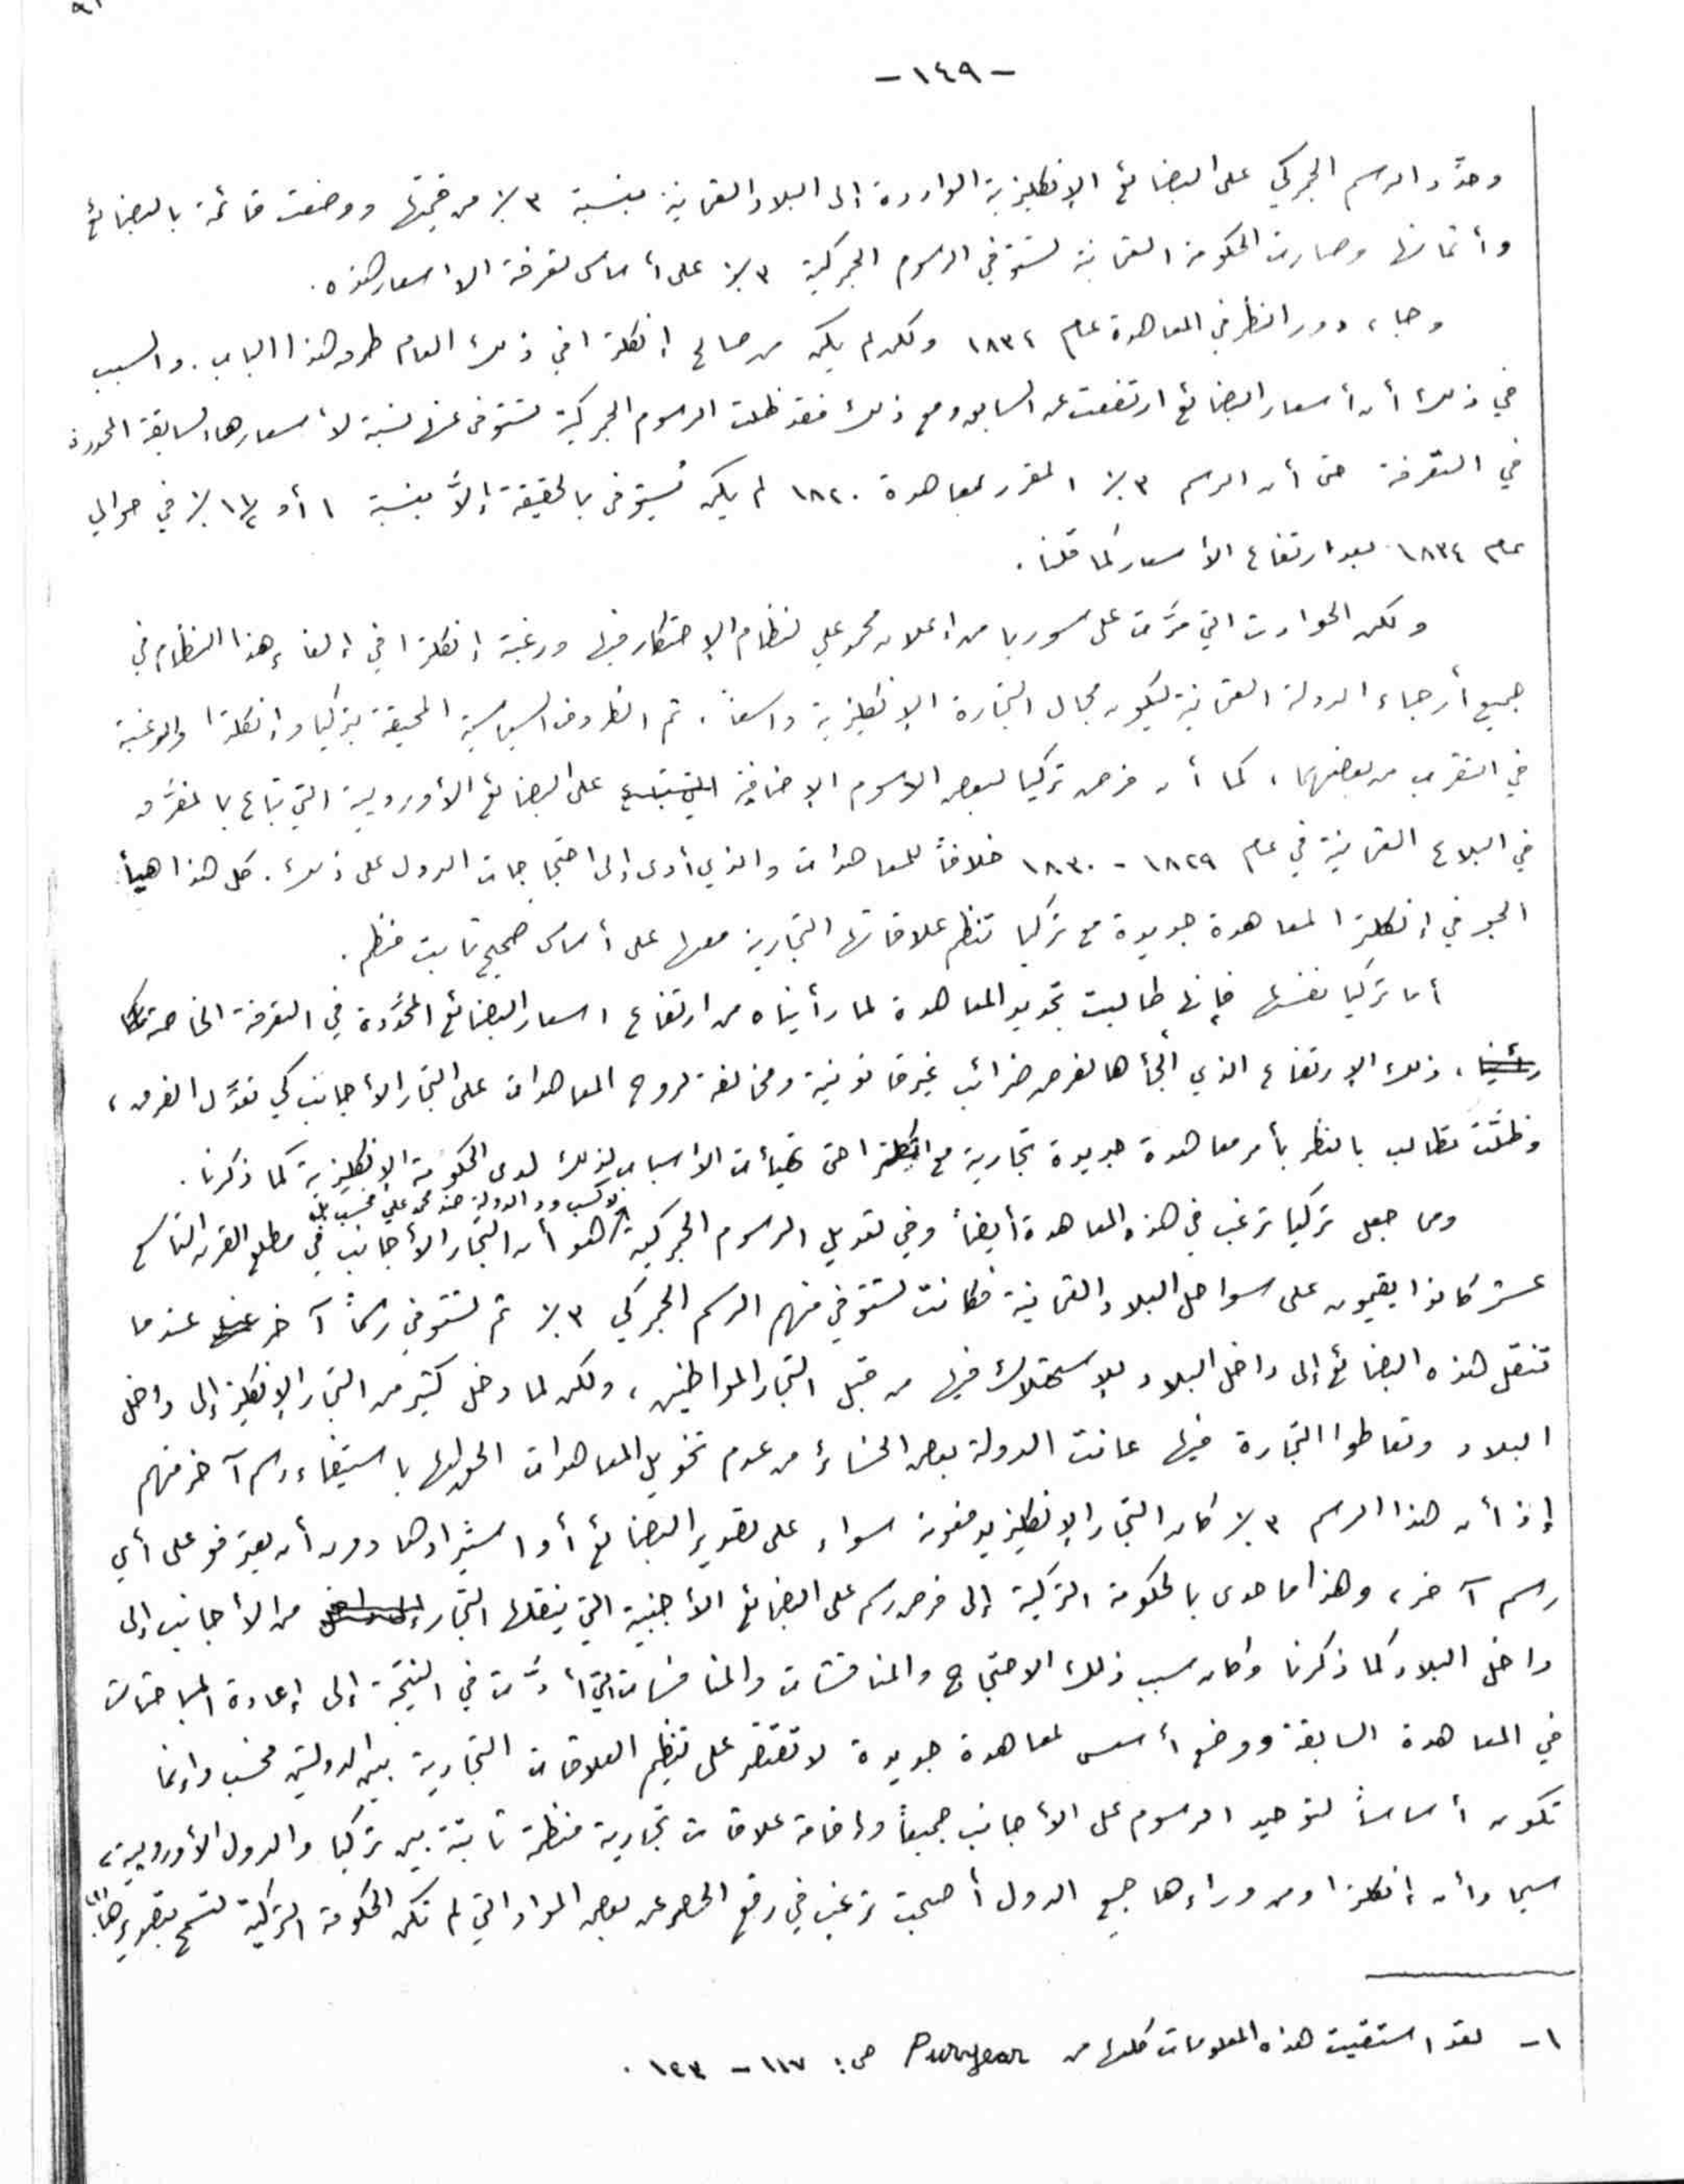 - ١٤٩ -
وحدَّد الرسم الجمركي على البضائع الإنكليزية الواردة إلى البلاد العثمانية بنسبة ٣٪ من قيمتها ووضعت قائمة بالبضائع
وأثمانها وصارت الحكومة العثمانية تستوفي الرسوم الجمركية ٣٪ على أساس تعرفة الاسعار هذه.
وجاء دور النظر في المعاهدة عام ١٨٣٤ ولكن لم يكن من صالح إنكلترا في ذلك العام طرق هذا الباب. والسبب
في ذلك أن أسعار البضائع ارتفعت عن السابق ومع ذلك فقد ظلت الرسوم الجمركية تستوفى عنها نسبة لأسعارها السابقة المحددة
في التعرفة حتى أن الرسم ٣٪ المقرر بمعاهدة ١٨٢٠ لم يكن يُستوفى بالحقيقة إلاَّ بنسبة ١ أو ١½٪ في حوالي
عام ١٨٣٤ بعد ارتفاع الأسعار كما قلنا.
ولكن الحوادث التي مرَّت على سوريا من إعلان محمد علي لنظام الإحتكار فيها ورغبة إنكلترا في إلغاء هذا النظام في
جميع أرجاء الدولة العثمانية ليكون مجال التجارة الإنكليزية واسعاً. ثم الظروف السياسية المحيقة بتركيا وإنكلترا والرغبة
في التقرب من بعضهما، كما أن فرض تركيا لبعض الرسوم الإضافية على البضائع الأوروبية التي تباع بالمفرَّق
في البلاد العثمانية في عام ١٨٢٩ - ١٨٣٠ خلافاً للمعاهدات والذي أدى إلى احتجاجات الدول على ذلك. كل هذا هيأ
الجو في إنكلترا لمعاهدة جديدة مع تركيا تنظم علاقاتها التجارية معها على أساس صحيح ثابت منظم.
أما تركيا نفسها فإنها طالبت تجديد المعاهدة لما رأيناه من ارتفاع اسعار البضائع المحدَّدة في التعرفة الخاصة
، ذلك الإرتفاع الذي ألجأها لفرض ضرائب غير قانونية ومخالفة لروح المعاهدات على التجار الأجانب كي تعدَّل الفرق،
وظلَّت تطالب بالنظر بأمر معاهدة جديدة تجارية مع انكلترا حتى تهيأت الاسباب لذلك لدى الحكومة الإنكليزية كما ذكرنا.
لا كسب ود الدولة ضد محمد علي فحسب بل
ومما جعل تركيا ترغب في هذه المعاهدة أيضاً وفي تعديل الرسوم الجمركية هو أن التجار الأجانب في مطلع القرن التاسع
عشر كانوا يقيمون على سواحل البلاد العثمانية فكانت تستوفي منهم الرسم الجمركي ٣٪ ثم تستوفي رسماً آخر عندما
تنتقل هذه البضائع إلى داخل البلاد للإستهلاك فيها من قبل التجار المواطنين، ولكن لما دخل كثير من التجار الإنكليز إلى داخل
البلاد وتعاطوا التجارة فيها عانت الدولة بعض الخسائر من عدم تخويل المعاهدات الحق لها باستيفاء رسم آخر منهم
إذ أن هذا الرسم ٣٪ كان التجار الإنكليز يدفعونه سواء على تصدير البضائع أو استيرادها دون أن يعترفوا على أي
رسم آخر، وهذا ما حدى بالحكومة التركية إلى فرض رسم على البضائع الأجنبية التي ينقلها التجار من الأجانب إلى
داخل البلاد كما ذكرنا وكان سبب ذلك الاحتجاج والمناقشات والمنافسات التي أدَّت في النتيجة إلى إعادة المباحثات
في المعاهدة السابقة ووضع أسس لمعاهدة جديدة لا تقتصر على تنظيم العلاقات التجارية بين الدولتين فحسب وإنما
تكون أساساً لتوحيد الرسوم على الأجانب جميعاً وإقامة علاقات تجارية منظمة ثابتة بين تركيا والدول الأوروبية،
سيما وأن إنكلترا ومن وراءها جميع الدول أصبحت ترغب في رفع الحصر عن بعض المواد التي لم تكن الحكومة التركية تسمح بتصديرها(١).
١ - لقد استقيت هذه المعلومات كلها من Puryear ص: ١١٧ - ١٢٣.